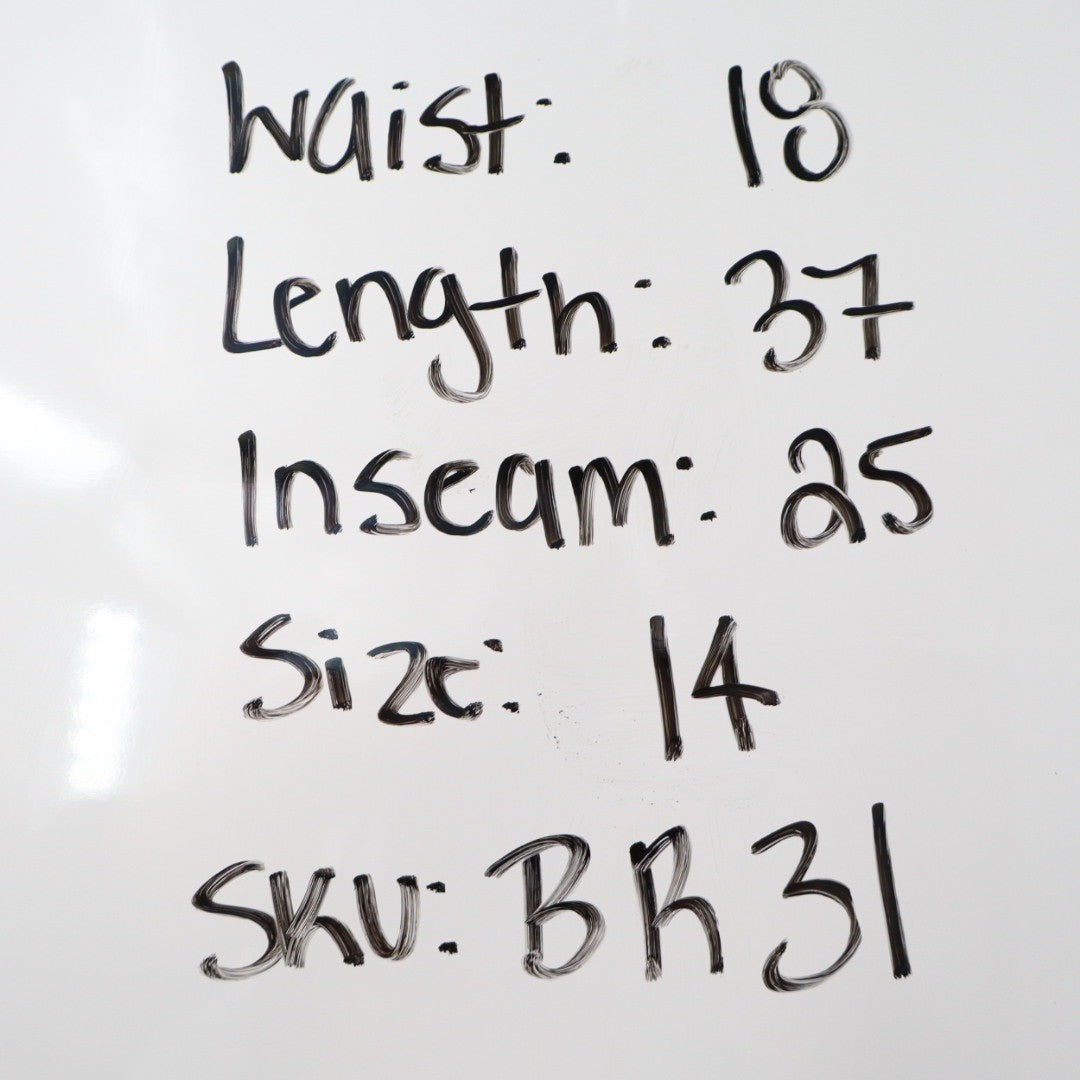 Waist: 18
Length: 37
Inseam: 25
Size: 14
SKU: BR31